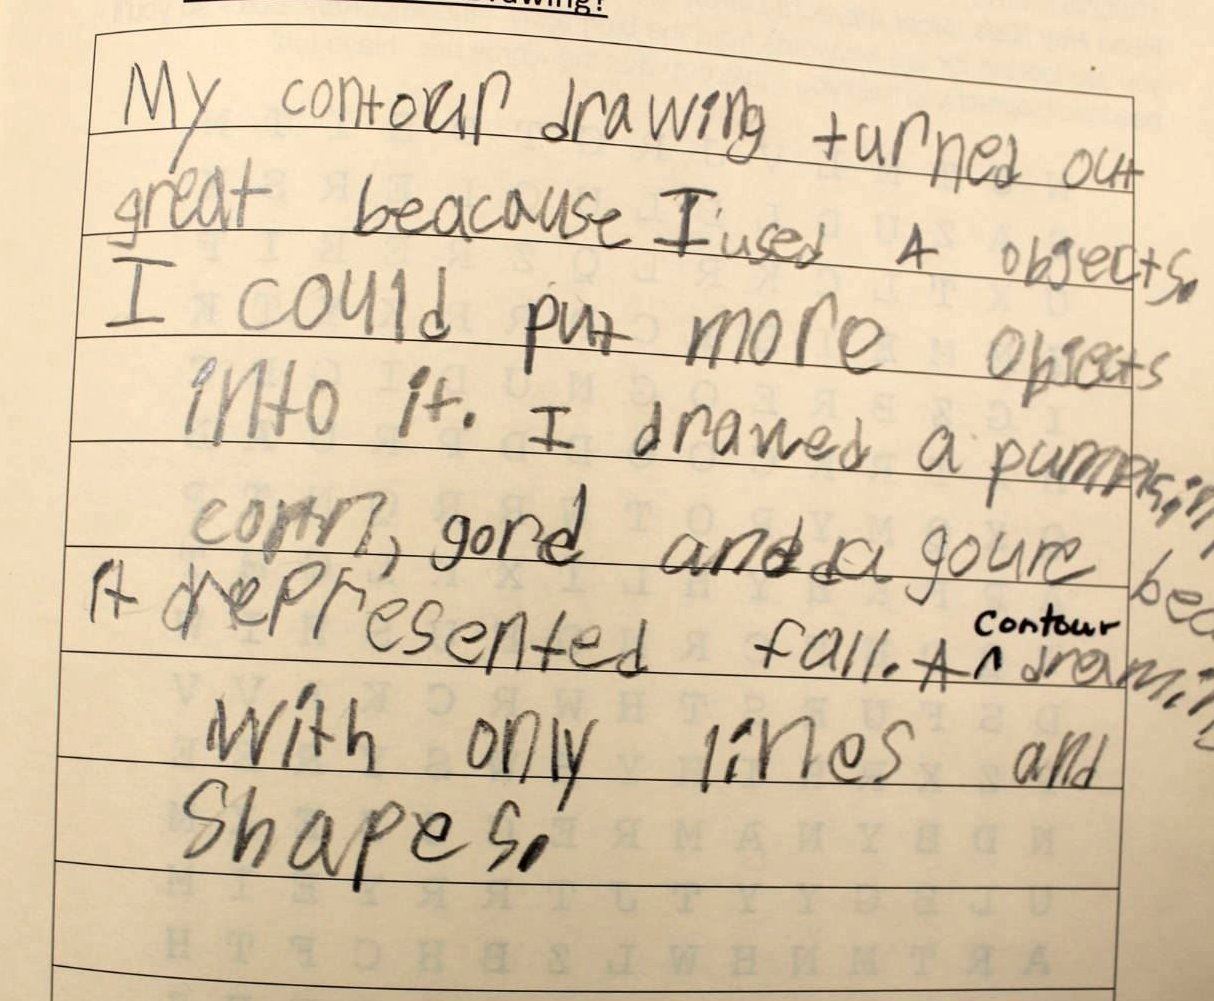 drawing?
My contour drawing turned out
great beacause I used 4 objects.
I could put more objects
into it. I drawed a pumpkin
corn, gord and a goure bec
it represented fall. A contour drawin
with only lines and
shapes.